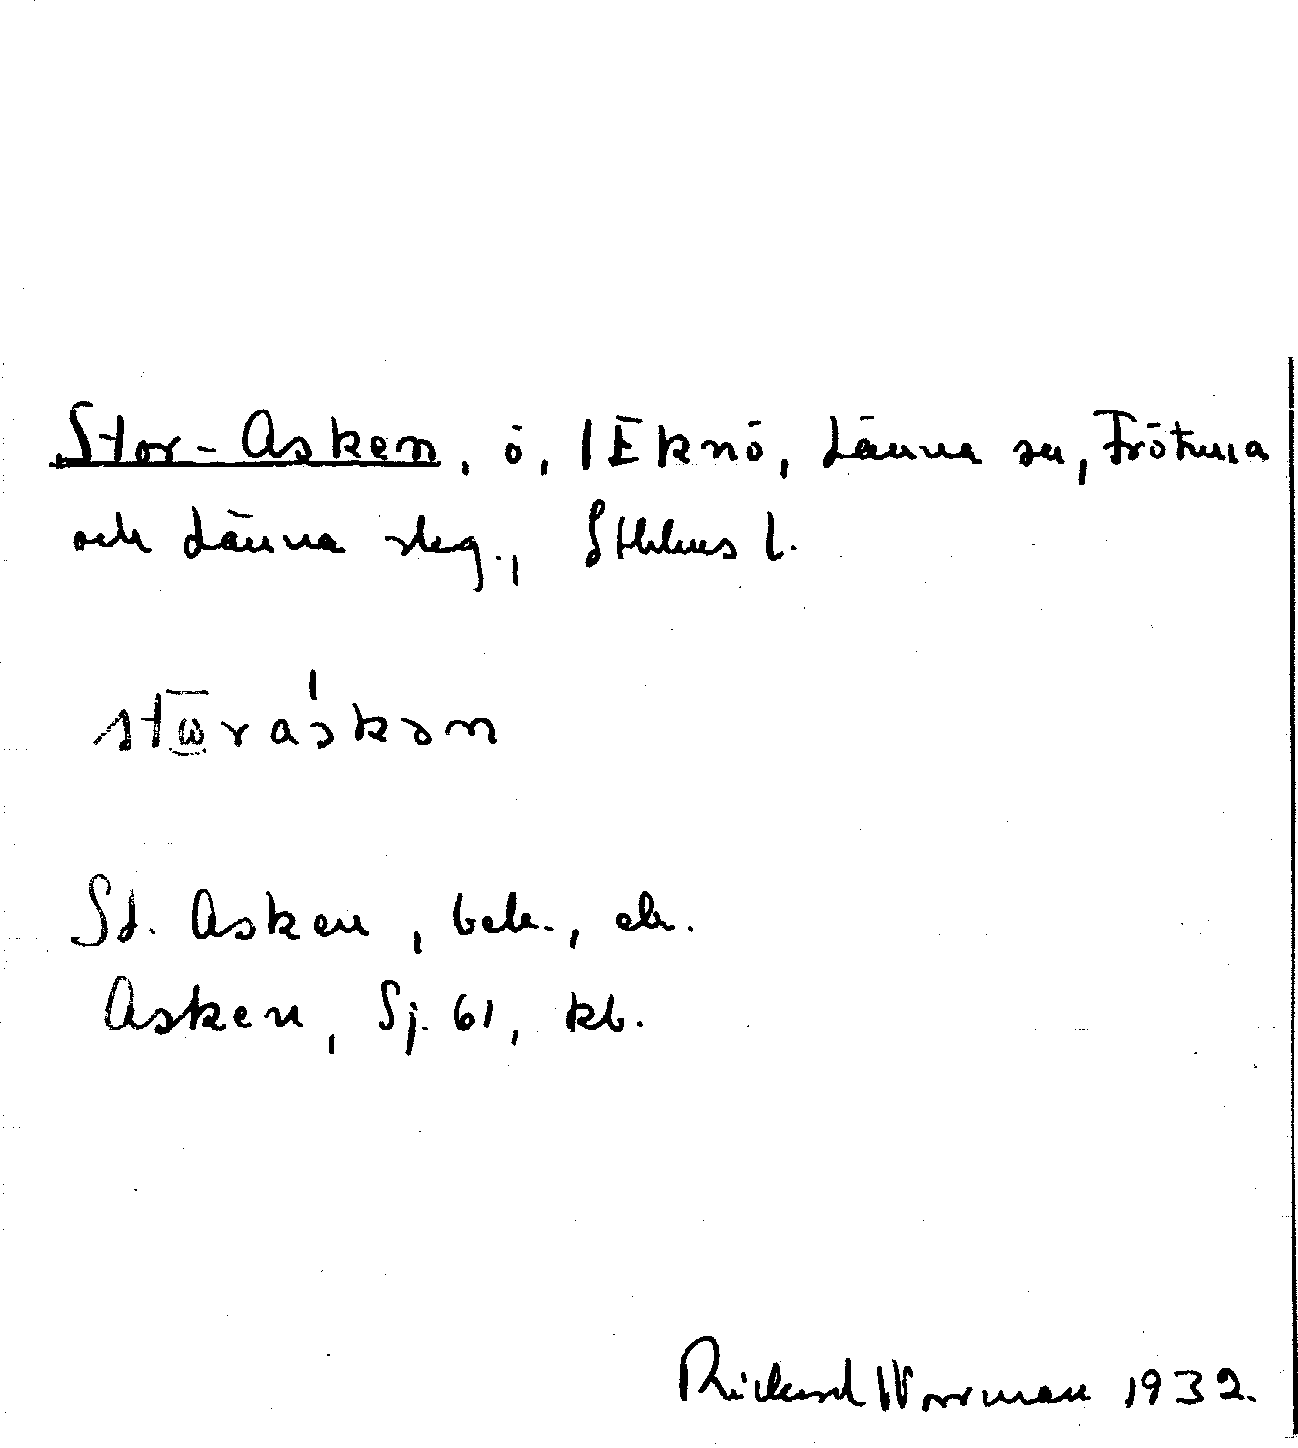 Stor-Asken, ö, 1 Eknö, Länna sn, Frötuna
och Länna skg., Sthlms l.
stωráskən
St. Asken, bek., ek.
Asken, Sj. 61, kb.
Rickard Worrman 1932.